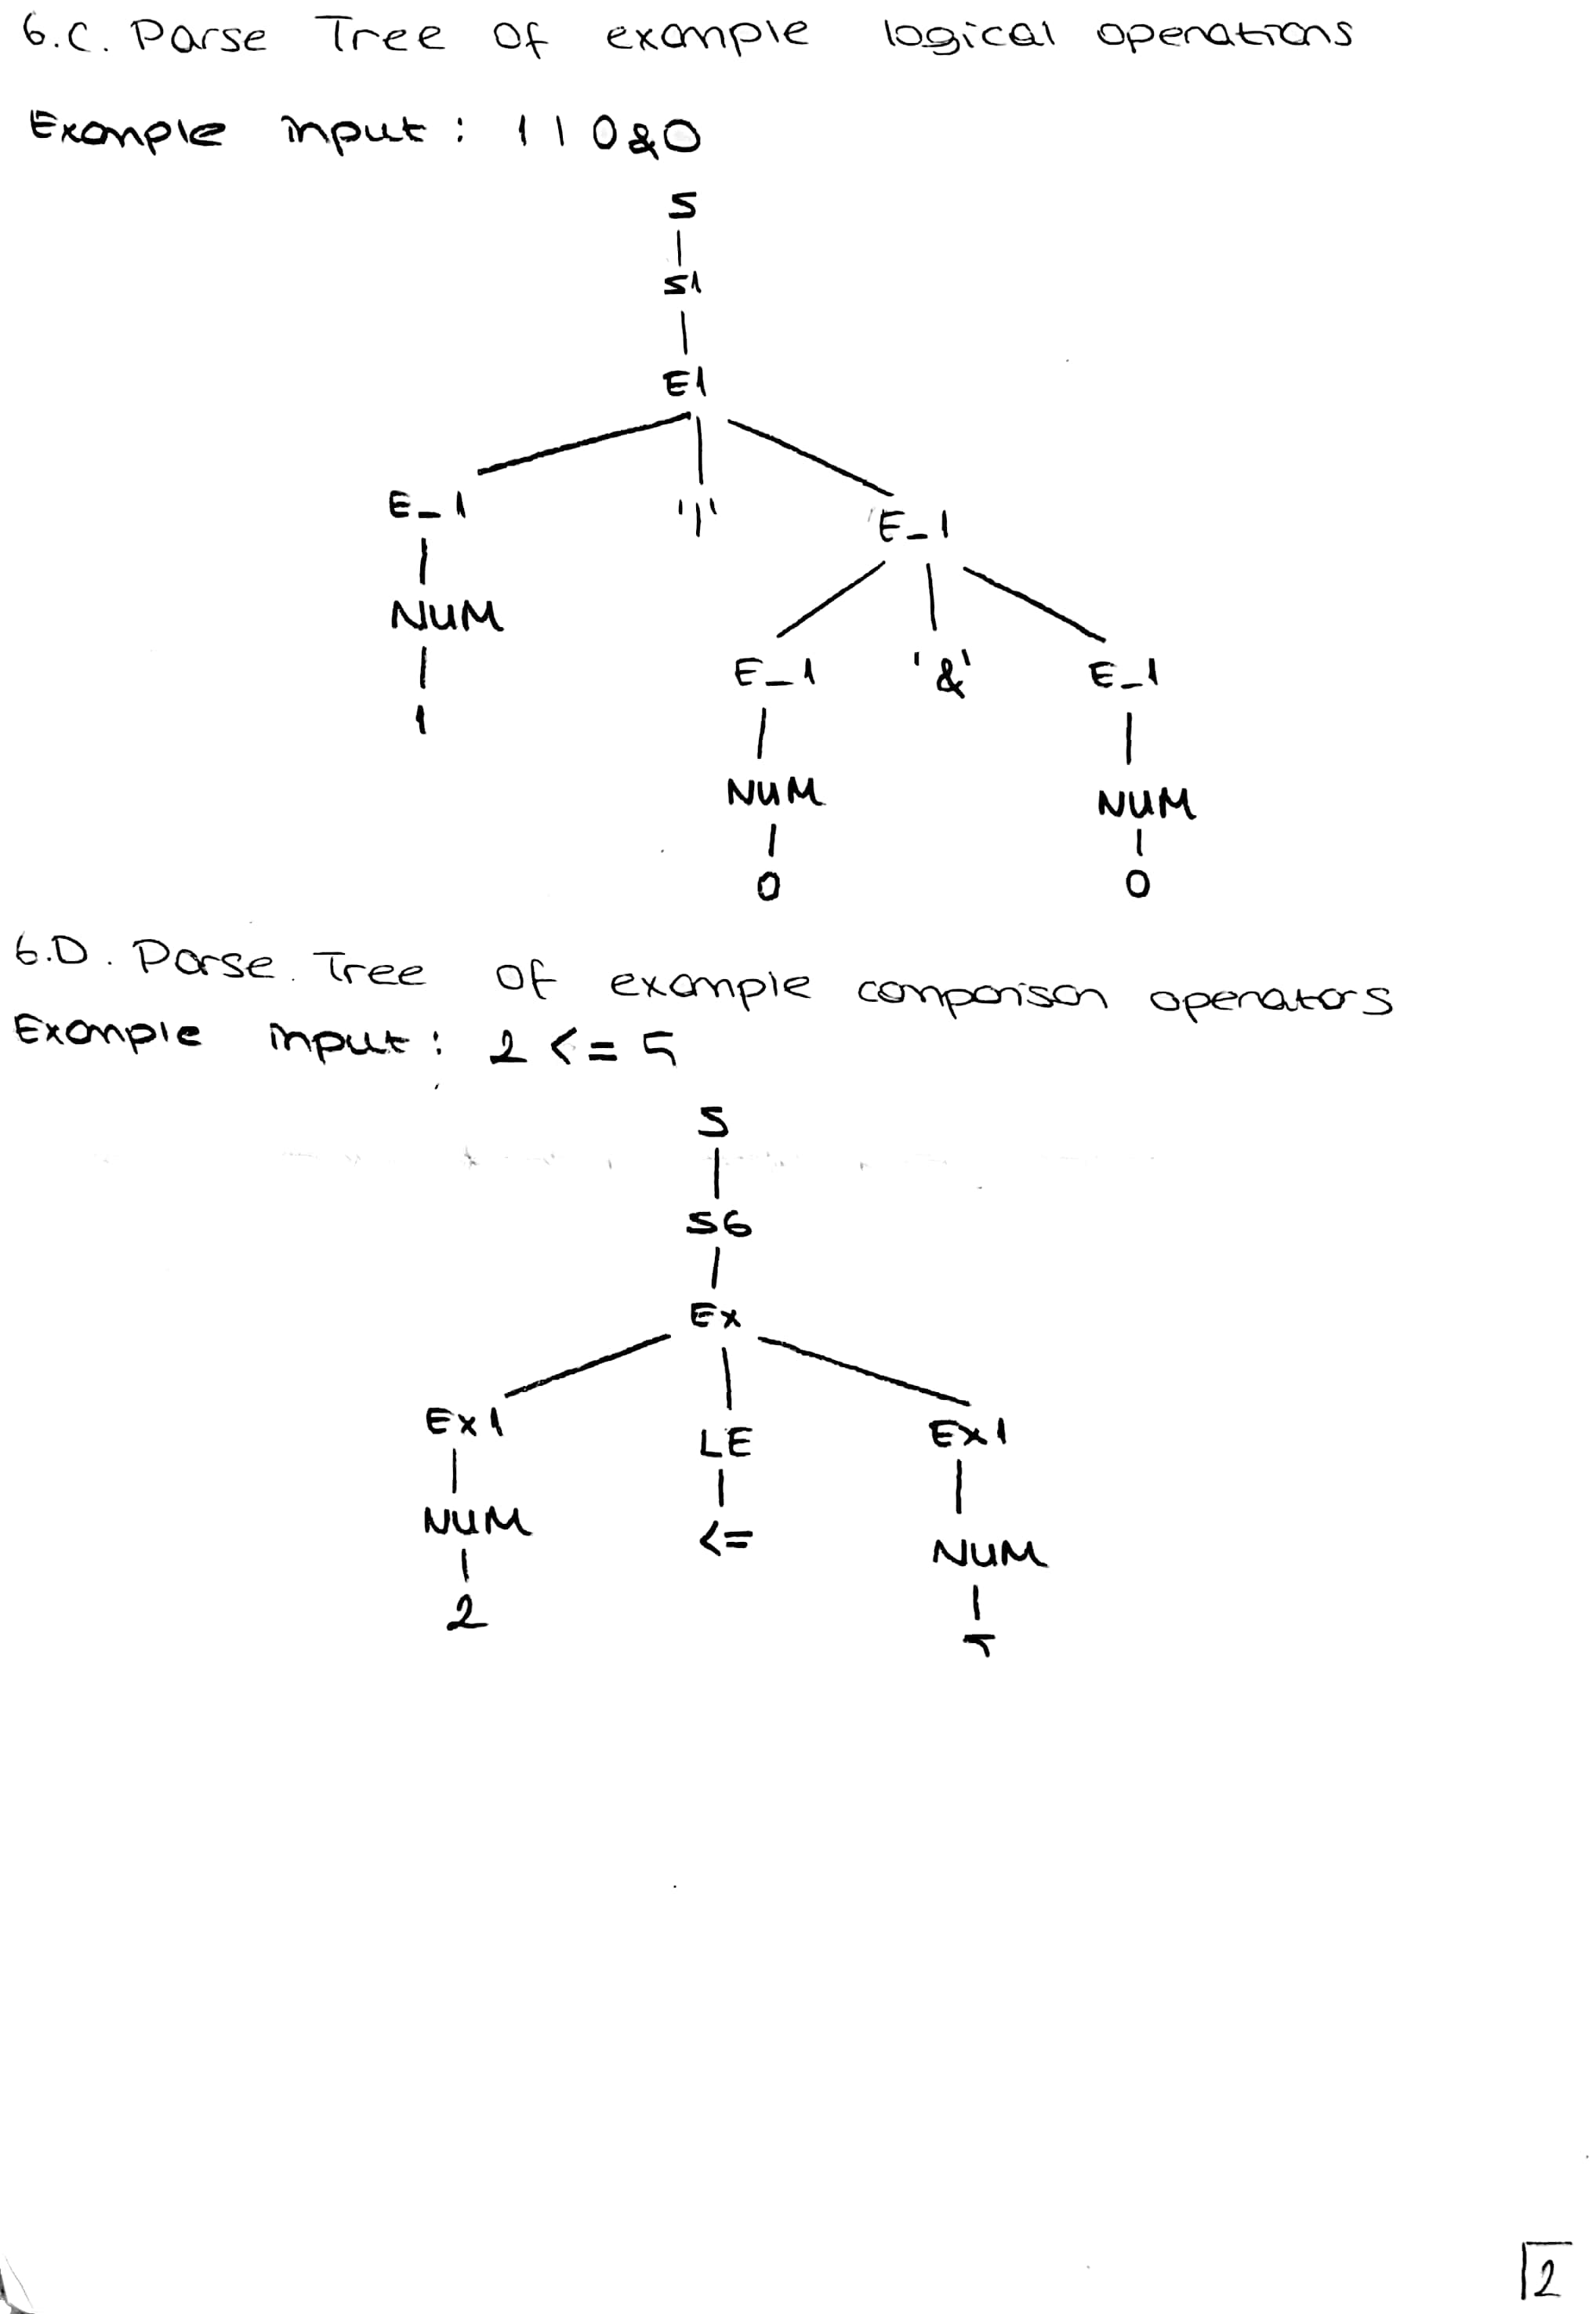 6.C. Parse Tree of example logical operations
Example input : 1 | 0 & 0
S
S1
E1
E_1 '|' E_1
NUM
E_1 '&' E_1
1
NUM NUM
0 0
6.D. Parse Tree of example comparison operators
Example input : 2 <= 5
S
S6
Ex
Ex1 LE Ex1
NUM <= NUM
2 5
2